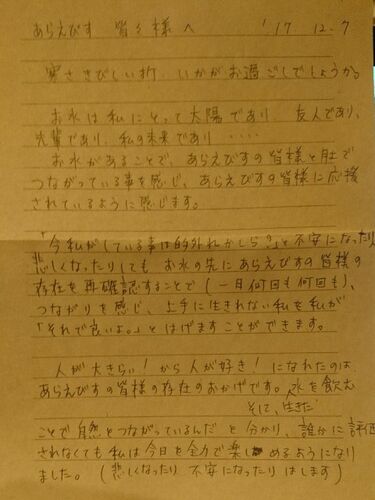 あらえびす 皆々様へ '17 12.7
寒さきびしい折、いかがお過ごしでしょうか。
お水は私にとって太陽であり、友人であり、
先輩であり、私の未来であり・・・・
お水があることで、あらえびすの皆様と
つながっている事を感じ、あらえびすの皆様に応援
されているように感じます。
「今私がしている事は的外れかしら?」と不安になったり
悲しくなったりしても お水の先にあらえびすの皆様の
存在を再確認することで(一日何回も何回も)、
つながりを感じ、上手に生きれない私を私が
「それで良いよ。」とはげますことができます。
人が大きらい!から人が好き!になれたのは
あらえびすの皆様の存在のおかげです。水を飲む
そして、生きた
ことで自然とつながっているんだと分かり、誰かに評価
されなくても私は今日を全力で楽しめるようになり
ました。(悲しくなったり 不安になったりはします)